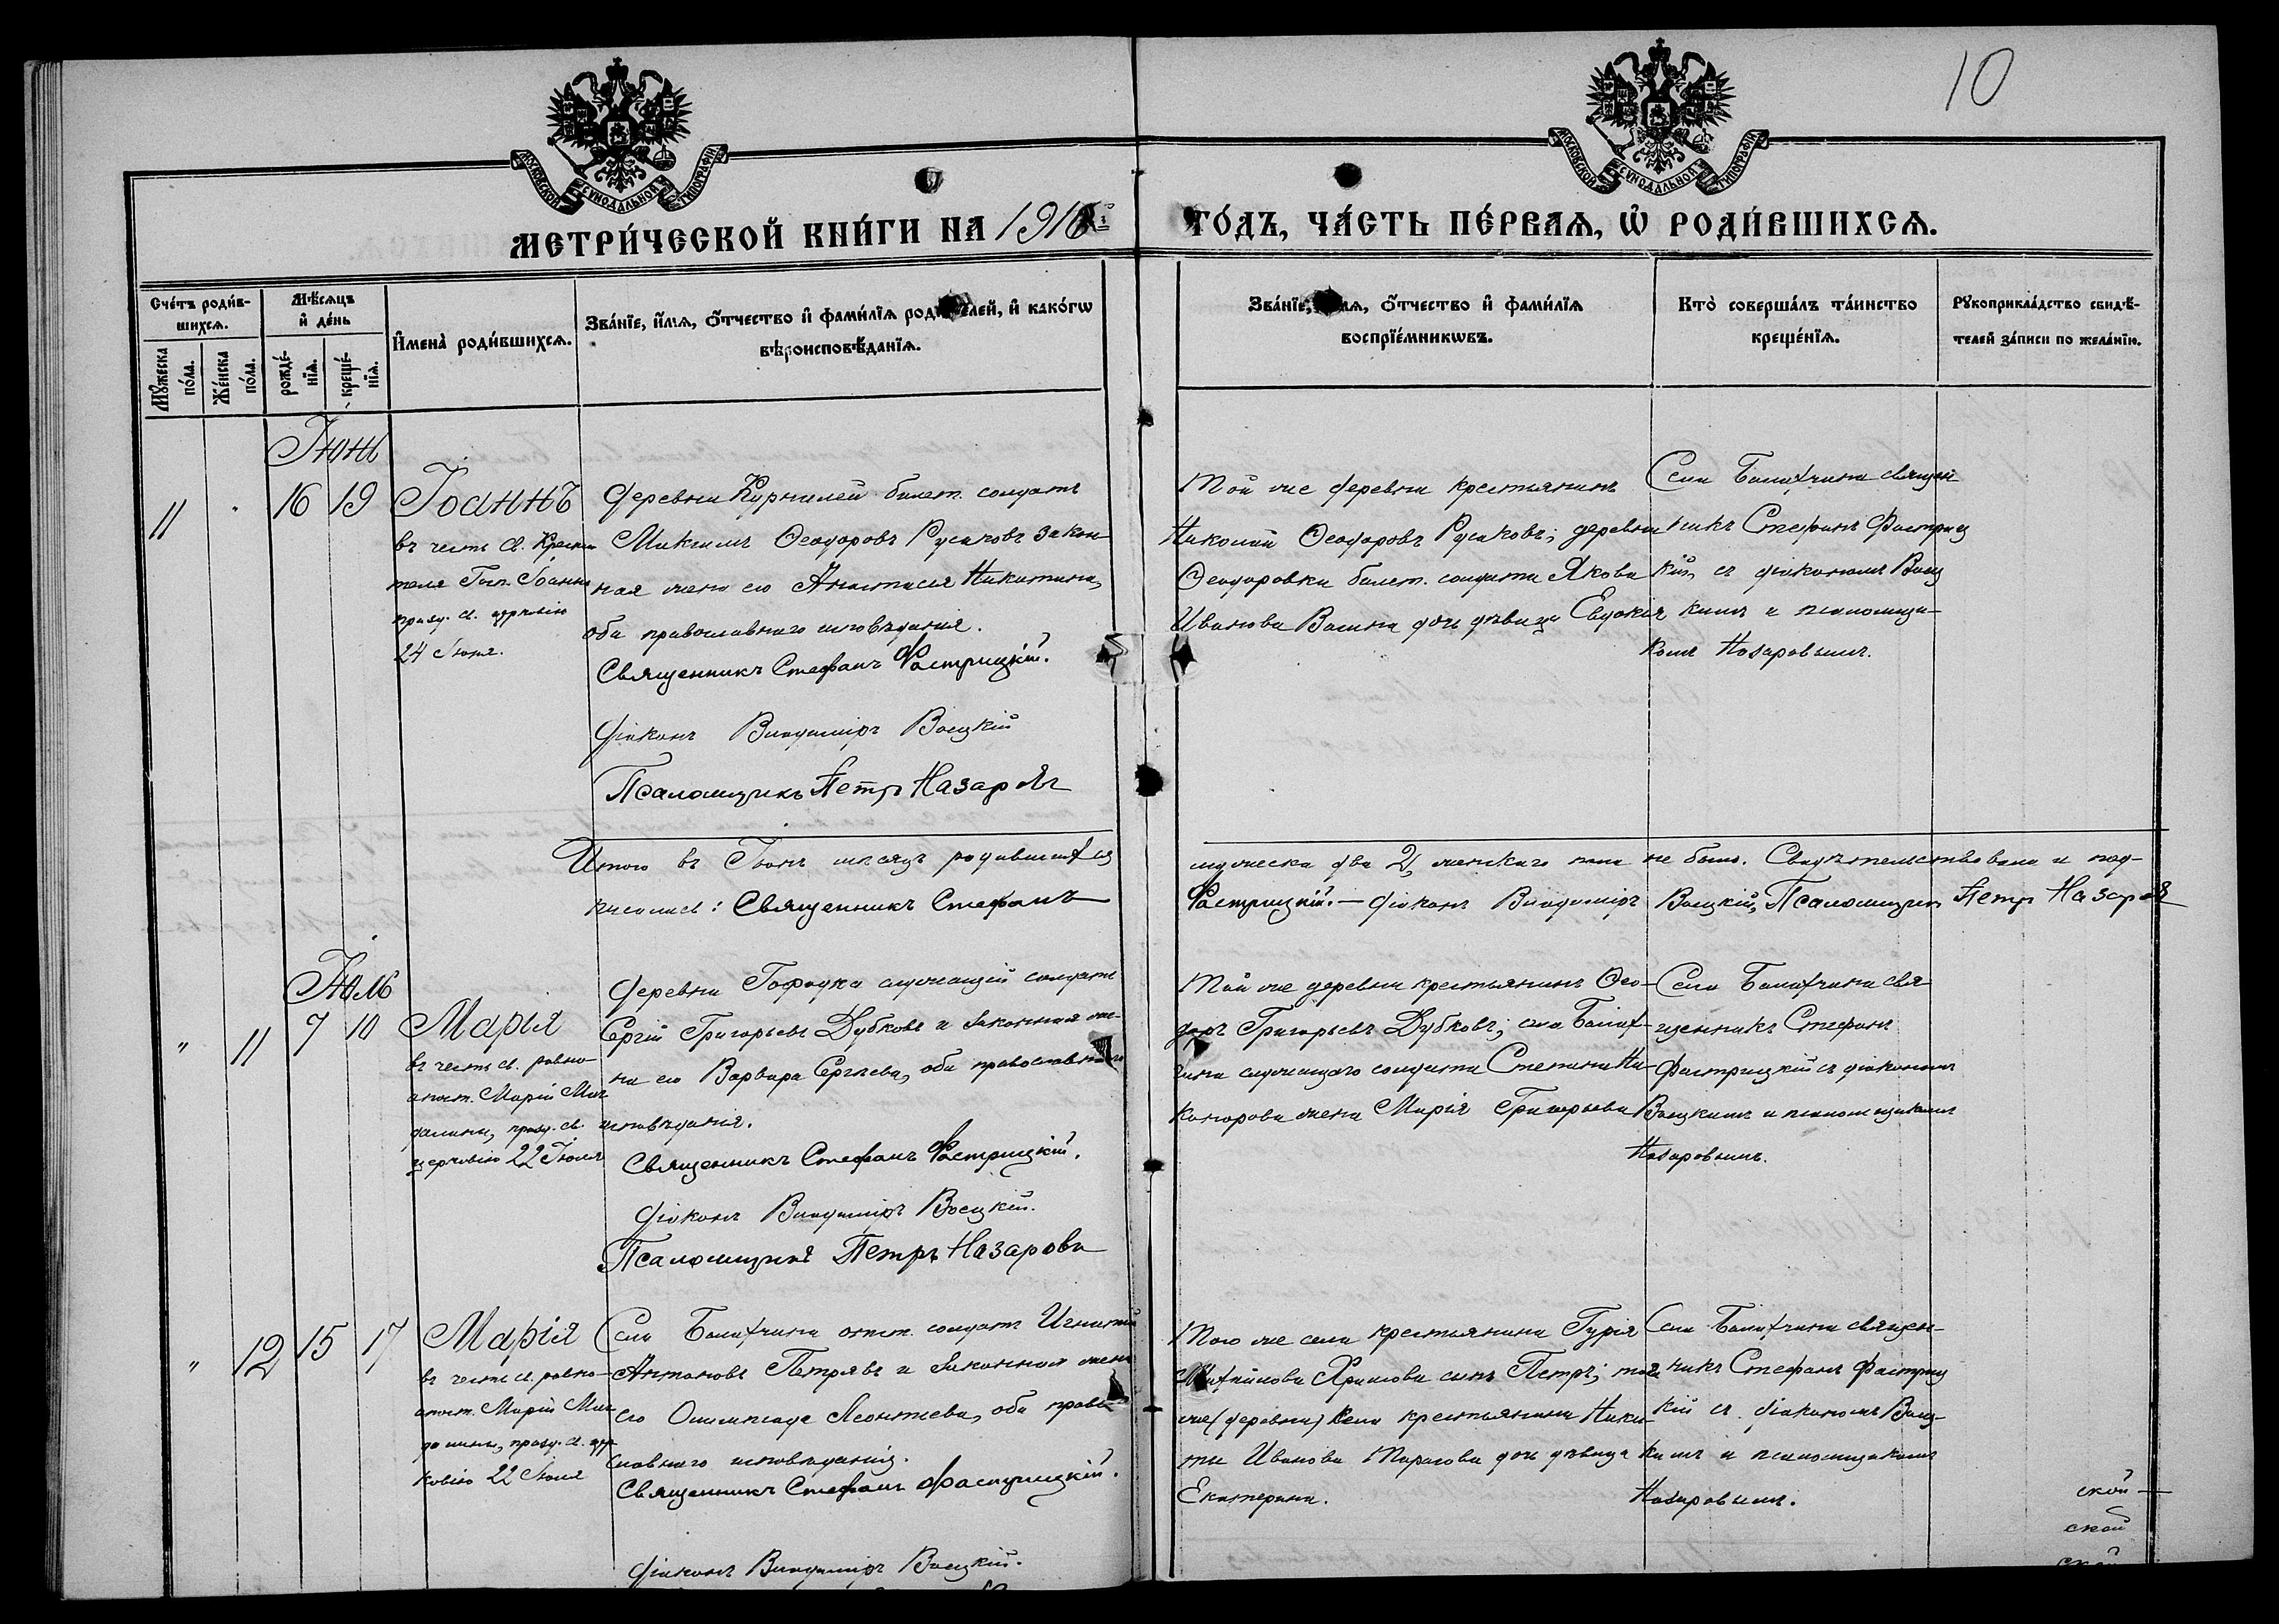 10
МОСКОВСКОЙ СѴНОДАЛЬНОЙ ТИПОГРАФІИ
МОСКОВСКОЙ СѴНОДАЛЬНОЙ ТИПОГРАФІИ
МЕТРИ́ЧЕСКОЙ КНИ́ГИ НА 1916 ГО́ДЪ, ЧА́СТЬ ПЕ́РВАѦ, Ѡ҆ РОДИ́ВШИХСѦ.
Сче́тъ роди́в-
шихсѧ.
Мꙋ́жеска по́ла.
Же́нска по́ла.
Мѣ́сѧцъ
и҆ де́нь
рожде́-
нїѧ.
креще́-
нїѧ.
И҆мена̀ роди́вшихсѧ.
Зва́нїе, и҆́мѧ, ѻ҆́тчество и҆ фами́лїѧ роди́телей, и҆ како́гѡ
вѣроисповѣ́данїѧ.
Зва́нїе, и҆́мѧ, ѻ҆́тчество и҆ фами́лїѧ
воспрїе́мникѡвъ.
Кто̀ соверша́лъ та́инство
креще́нїѧ.
Рꙋкоприкла́дство свидѣ́-
телей за́писи по жела́нїю.
Іюнь
11 16 19
Іоаннъ
въ честь св. Крести
теля Гос. Іоанна
празд. св. церковію
24 Іюня.
Деревни билет. солдатъ
Максимъ Ѳеодоровъ Русаковъ закон-
ная жена его Анастасія Никитина,
оба православнаго исповѣданія.
Священникъ Стефанъ Фастрицкій.
Діаконъ Владиміръ Воецкій
Псаломщикъ Петръ Назаровъ
Той же деревни крестьянинъ
Николай Ѳеодоровъ Русаковъ; деревни
Ѳеодоровки билет. солдата Якова
Иванова дочь дѣвица Евдокія
Села Балахчина священ
никъ Стефанъ Фастриц
кій съ діакономъ Воец
кимъ и псаломщи-
комъ Назаровымъ.
Итого въ Іюнѣ мѣсяцѣ родившихся мужеска два 2, женскаго пола не было. Свидѣтельствовали и под-
писались: Священникъ Стефанъ Фастрицкій. — Діаконъ Владиміръ Воецкій, Псаломщикъ Петръ Назаровъ
Іюль
" 11 7 10
Марія
въ честь св. равно-
апост. Маріи Маг
далины, празд. св.
церковію 22 Іюля
Деревни служащій солдатъ
Сергій Григорьевъ Дубковъ и законная же-
на его Варвара Сергѣева, оба православнаго
исповѣданія.
Священникъ Стефанъ Фастрицкій.
Діаконъ Владиміръ Воецкій.
Псаломщикъ Петръ Назаровъ
Той же деревни крестьянинъ Ѳео-
доръ Григорьевъ Дубковъ; села Балах-
чина служащаго солдата Степана Ни-
канорова жена Марія Григорьева
Села Балахчина свя-
щенникъ Стефанъ
Фастрицкій съ діакономъ
Воецкимъ и псаломщикомъ
Назаровымъ.
" 12 15 17
Марія
въ честь св. равно-
апост. Маріи Маг
далины, празд. св. цер
ковію 22 Іюля
Села Балахчина солдатъ Игнатій
Антоновъ Петряевъ и законная жена
его Олимпіада Леонтіева, оба право-
славнаго исповѣданія.
Священникъ Стефанъ Фастрицкій.
Діаконъ Владиміръ Воецкій.
Того же села крестьянина Гурія
Михайлова сынъ Петръ; того
же (деревни) села крестьянина Ники-
ты Иванова Тарасова дочь дѣвица
Екатерина.
Села Балахчина священ-
никъ Стефанъ Фастриц
кій съ діакономъ Воец-
кимъ и псаломщикомъ
Назаровымъ.
ской
ской
ской